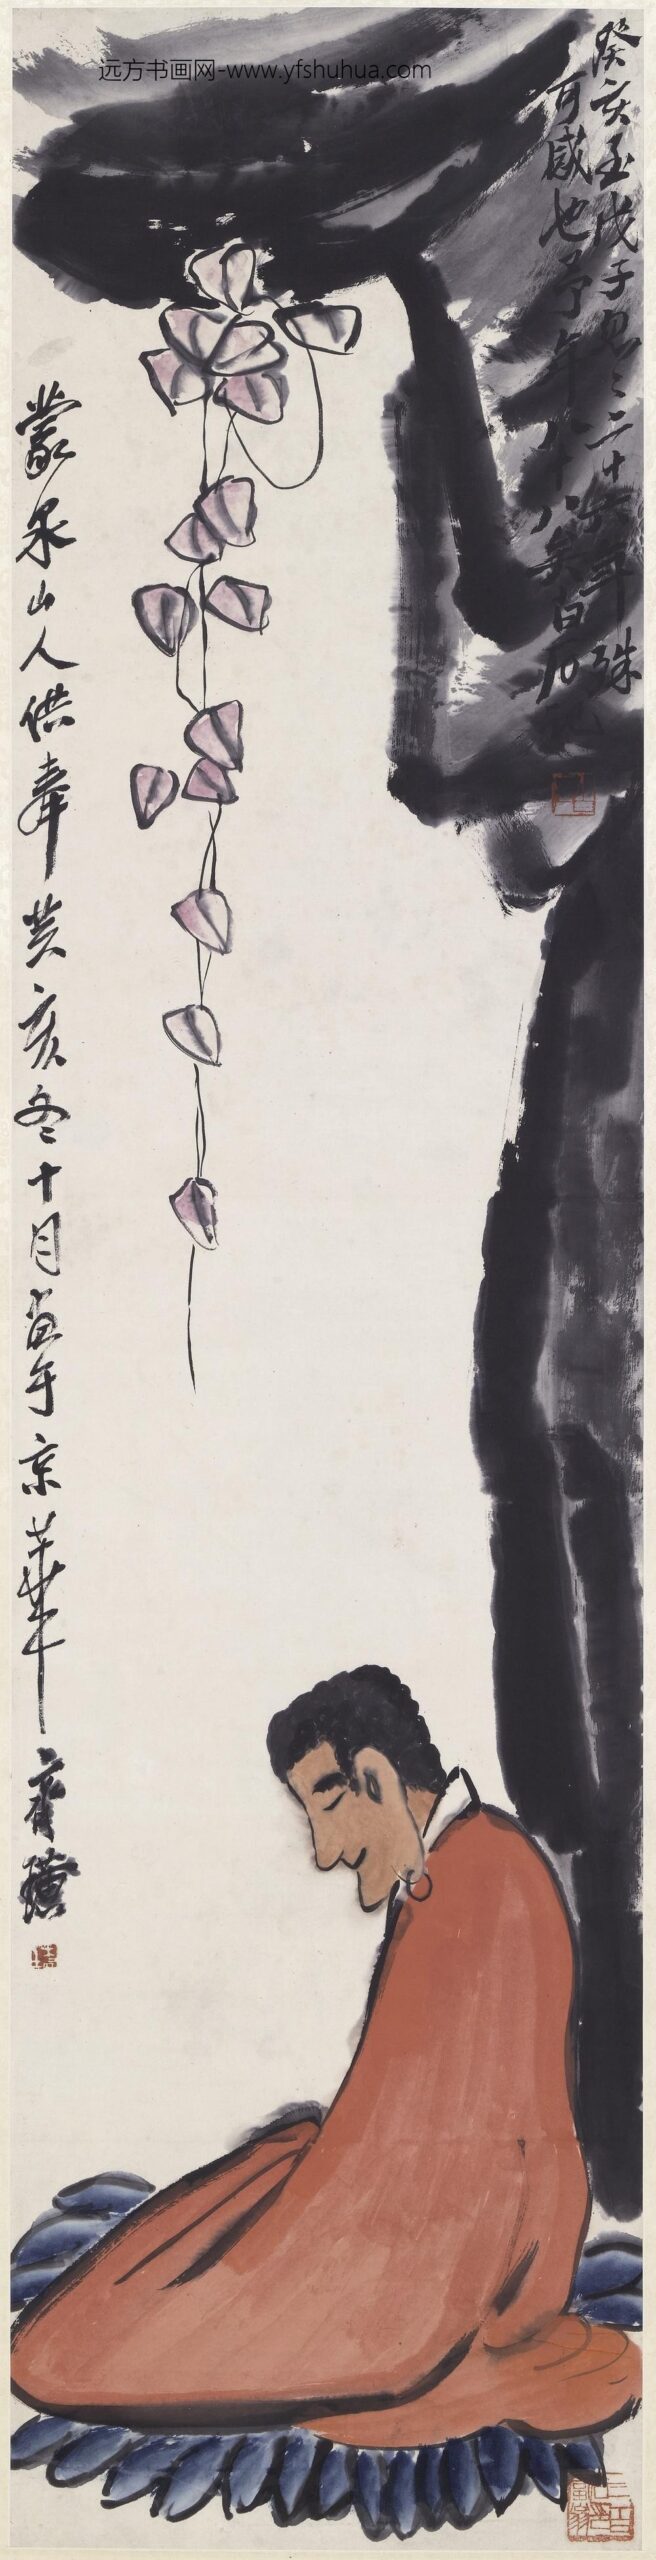 远方书画网-www.yfshuhua.com
癸亥至戊子忽忽二十六年殊
可感也予年八十八矣白石记
蒙泉山人供奉癸亥冬十月画于京华齐璜
三百石印富翁